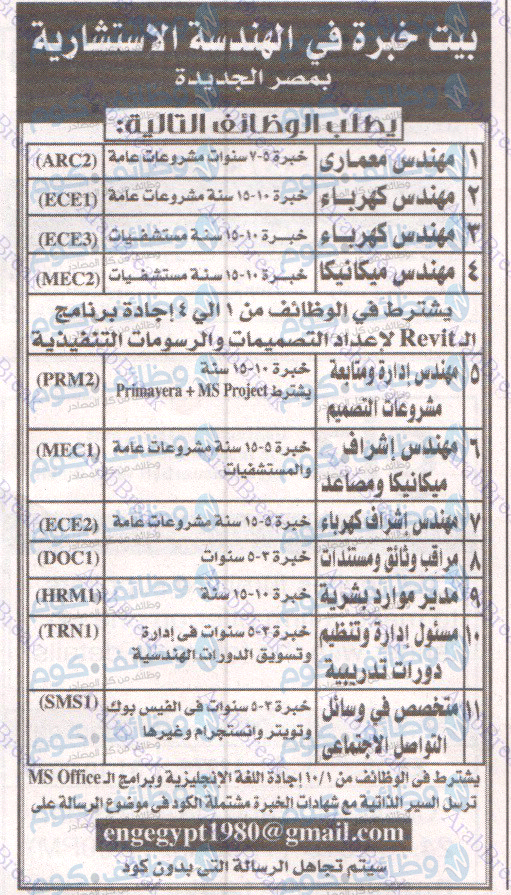 بيت خبرة في الهندسة الاستشارية
بمصر الجديدة
يطلب الوظائف التالية:
١ مهندس معمارى خبرة ٥-٧ سنوات مشروعات عامة (ARC2)
٢ مهندس كهرباء خبرة ١٠-١٥ سنة مشروعات عامة (ECE1)
٣ مهندس كهرباء خبرة ١٠-١٥ سنة مستشفيات (ECE3)
٤ مهندس ميكانيكا خبرة ١٠-١٥ سنة مستشفيات (MEC2)
يشترط في الوظائف من ١ الي ٤ إجادة برنامج
الـ Revit لاعداد التصميمات والرسومات التنفيذية
٥ مهندس إدارة ومتابعة خبرة ١٠-١٥ سنة (PRM2)
مشروعات التصميم يشترط Primavera + MS Project
٦ مهندس إشراف خبرة ٥-١٥ سنة مشروعات عامة (MEC1)
ميكانيكا ومصاعد والمستشفيات
٧ مهندس إشراف كهرباء خبرة ٥-١٥ سنة مشروعات عامة (ECE2)
٨ مراقب وثائق ومستندات خبرة ٣-٥ سنوات (DOC1)
٩ مدير موارد بشرية خبرة ١٠-١٥ سنة (HRM1)
١٠ مسئول إدارة وتنظيم خبرة ٣-٥ سنوات فى إدارة (TRN1)
دورات تدريبية وتسويق الدورات الهندسية
١١ متخصص في وسائل خبرة ٢-٥ سنوات فى الفيس بوك (SMS1)
التواصل الاجتماعى وتويتر وانستجرام وغيرها
يشترط فى الوظائف من ١٠/١ إجادة اللغة الانجليزية وبرامج الـ MS Office
ترسل السير الذاتية مع شهادات الخبرة مشتملة الكود فى موضوع الرسالة على
engegypt1980@gmail.com
سيتم تجاهل الرسالة التى بدون كود
وظائف.كوم
وظائف من كل المصادر
ArabBreak